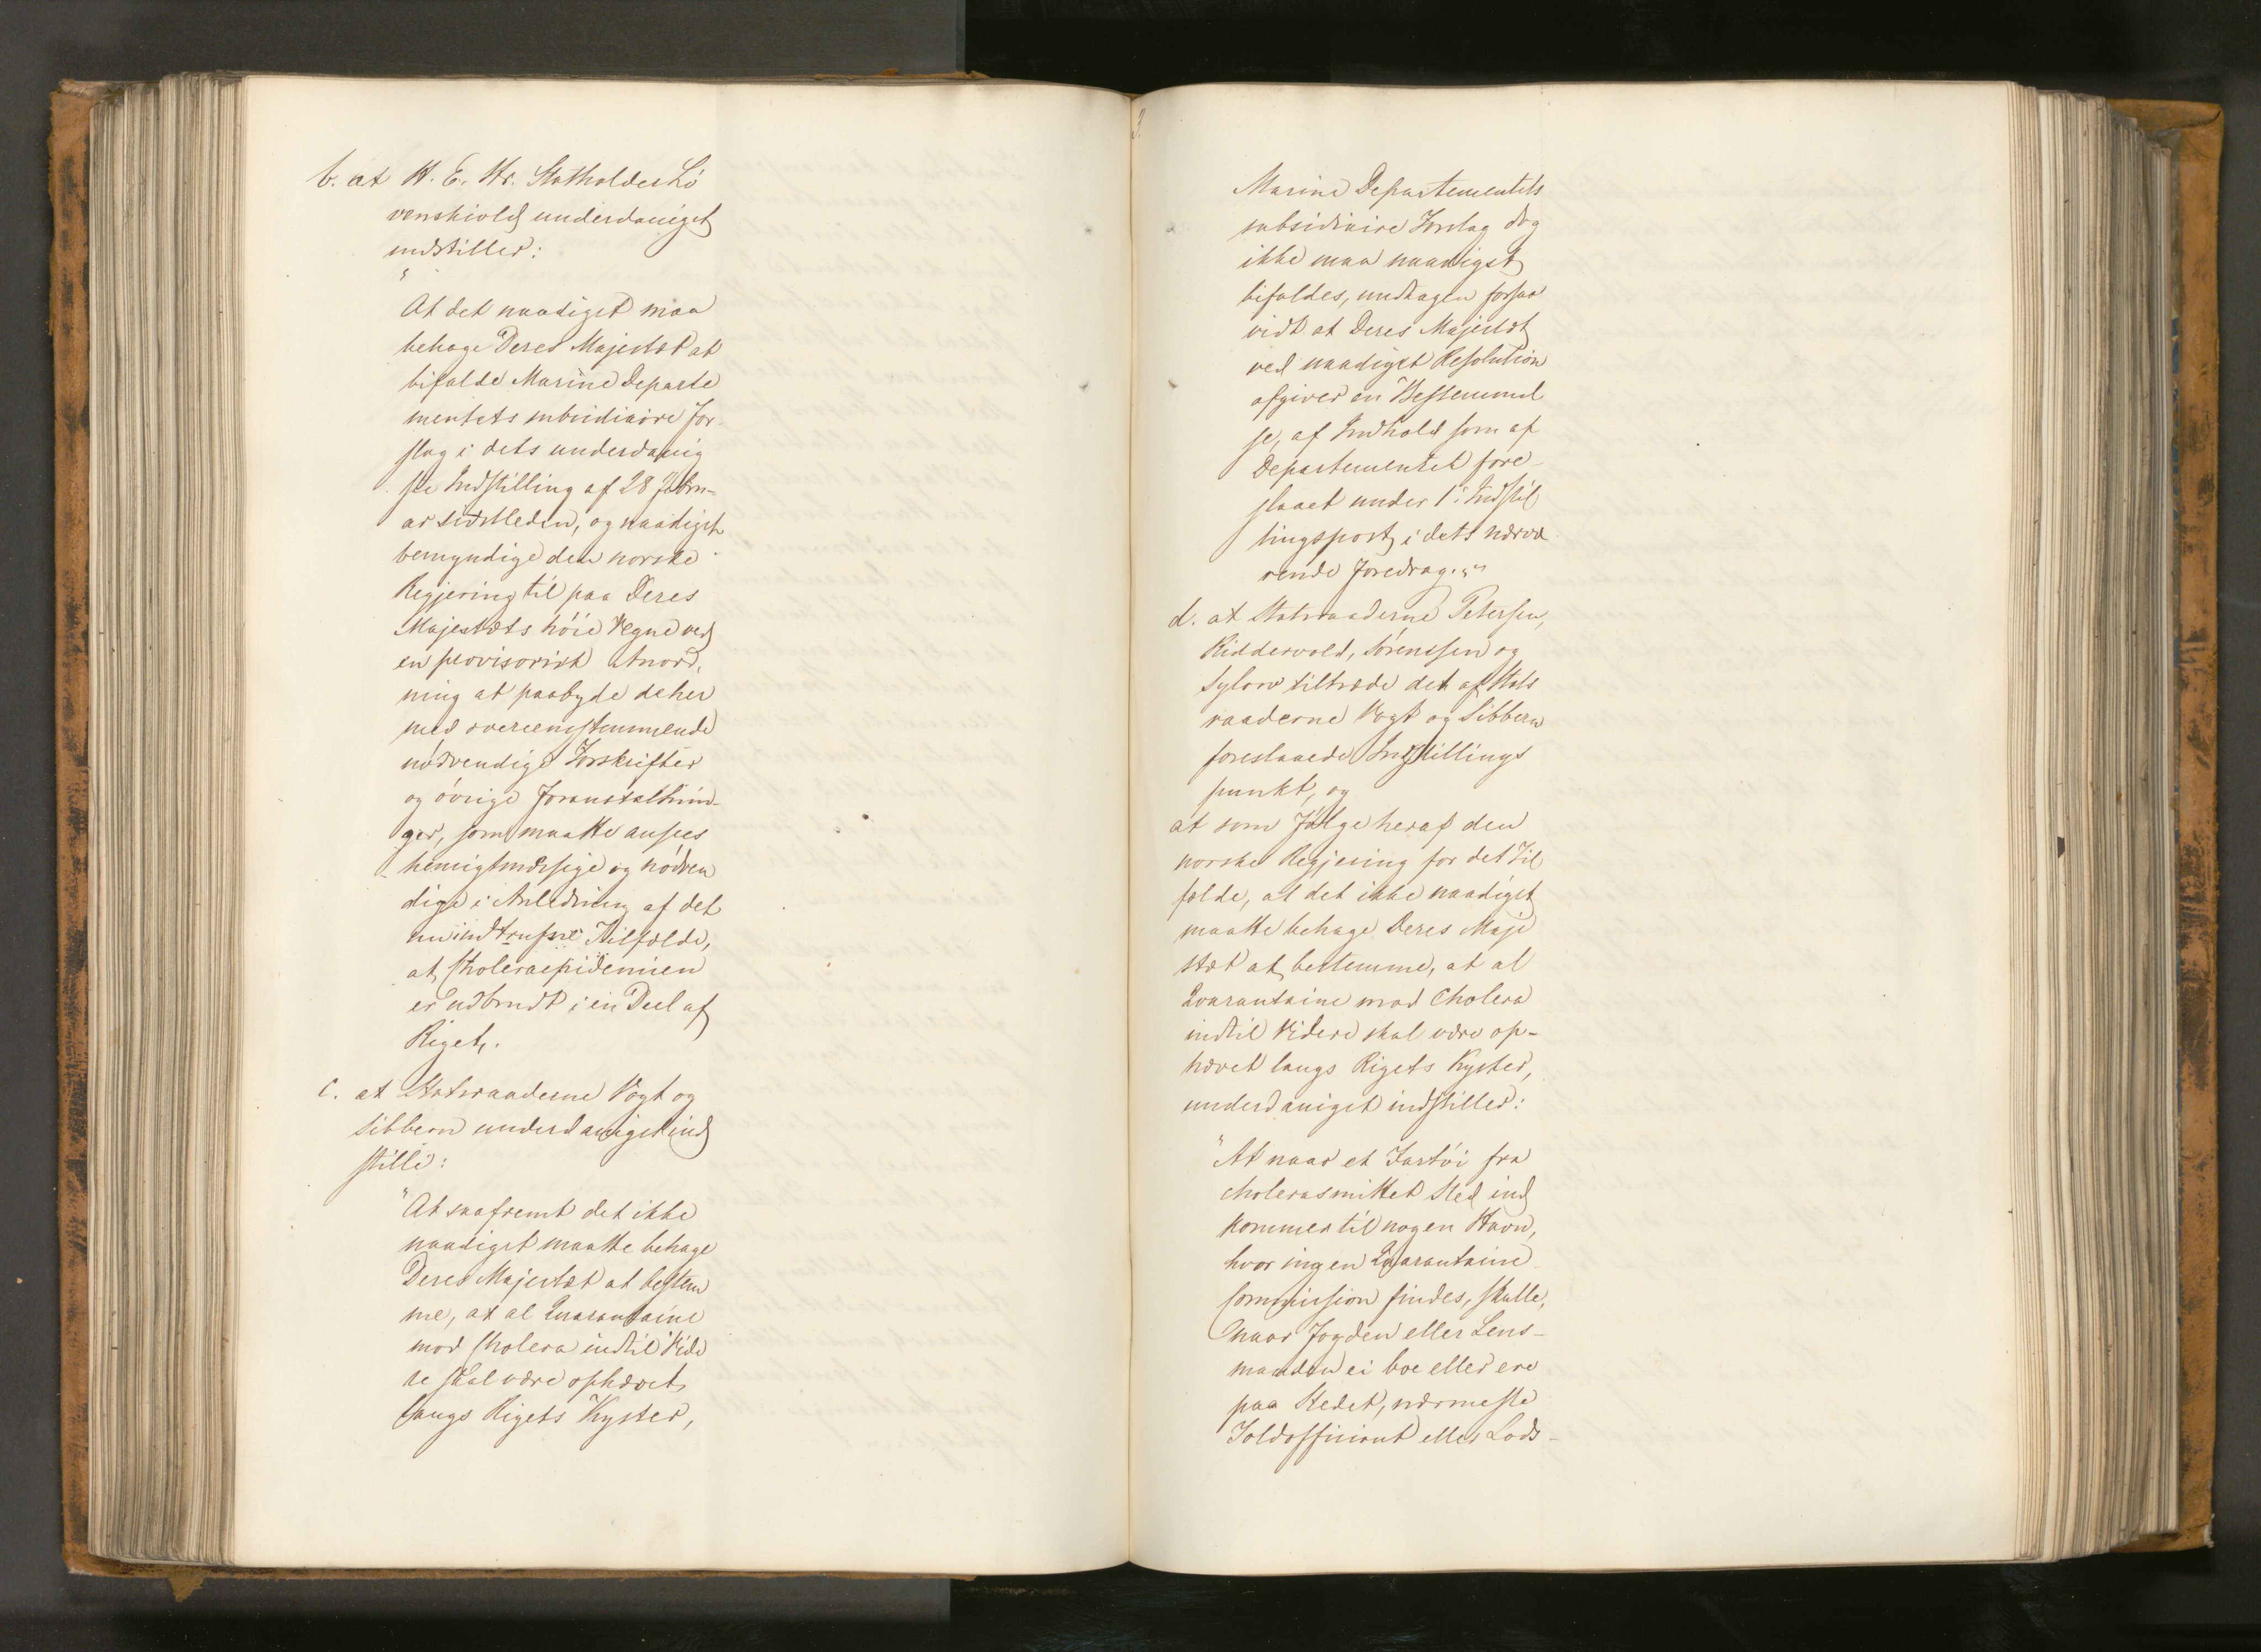 b. at H. E. Hr. Statholder Lö
venskiold underdanigst
indstiller:
"
At det naadigst maa
behage Deres Majestæt at
bifalde Marine Departe
mentets subsidiaire For-
slag i dets underdanig
ste Indstilling af 28 Febru-
ar sidstleden, og naadigst
bemyndige den norske
Regjering til paa Deres
Majestæts höie Vegne ved
en provisorisk Anord,
ning at paabyde de her
med overeensstemmende
nödvendige Forskrifter
og övrige Foranstaltnin-
ger, som maatte ansees
hensigtsmæssige og nödven
dige i Anledning af det
nu indtrufne Tilfælde,
at Choleraepidemien
er udbrudt i en Deel af
Riget.
c. at Statsraaderne Vogt og
Sibbern underdanigst ind
stille:
"At saafremt det ikke
naadigst maatte behage
Deres Majestæt at bestem
me, at al Quarantaine
mod Cholera indtil Vide
re skal være ophævet
langs Rigets Kyster,
3.
Marine Departementets
subsidiaire Forslag dog
ikke maa naadigst
bifaldes, undtagen forsaa
vidt at Deres Majestæt
ved naadigst Resolution
afgiver en Bestemmel
se, af Indhold som af
Departementet fore-
slaaet under 1ste Indstil
lingspost i dets nærvæ
rende Foredrag.""
d. at Statsraaderne Petersen,
Riddervold, Sörenssen og
Sylow tiltræde det af Stats
raaderne Vogt og Sibbern
foreslaaede Indstillings
punkt, og
at som Fölge heraf den
norske Regjering for det Til
fælde, at det ikke naadigst
maatte behage Deres Maje
stæt at bestemme, at al
Qvarantaine mod Cholera
indtil Videre skal være op-
hævet langs Rigets Kyster,
underdanigst indstiller:
"At naar et Fartöi fra
cholerasmittet Sted ind
kommer til nogen Havn,
hvor ingen Quarantaine
Commission findes, skulle,
naar Fogden eller Lens-
manden ei boe eller ere
paa Stedet, nærmeste
Toldofficiant eller Lods-